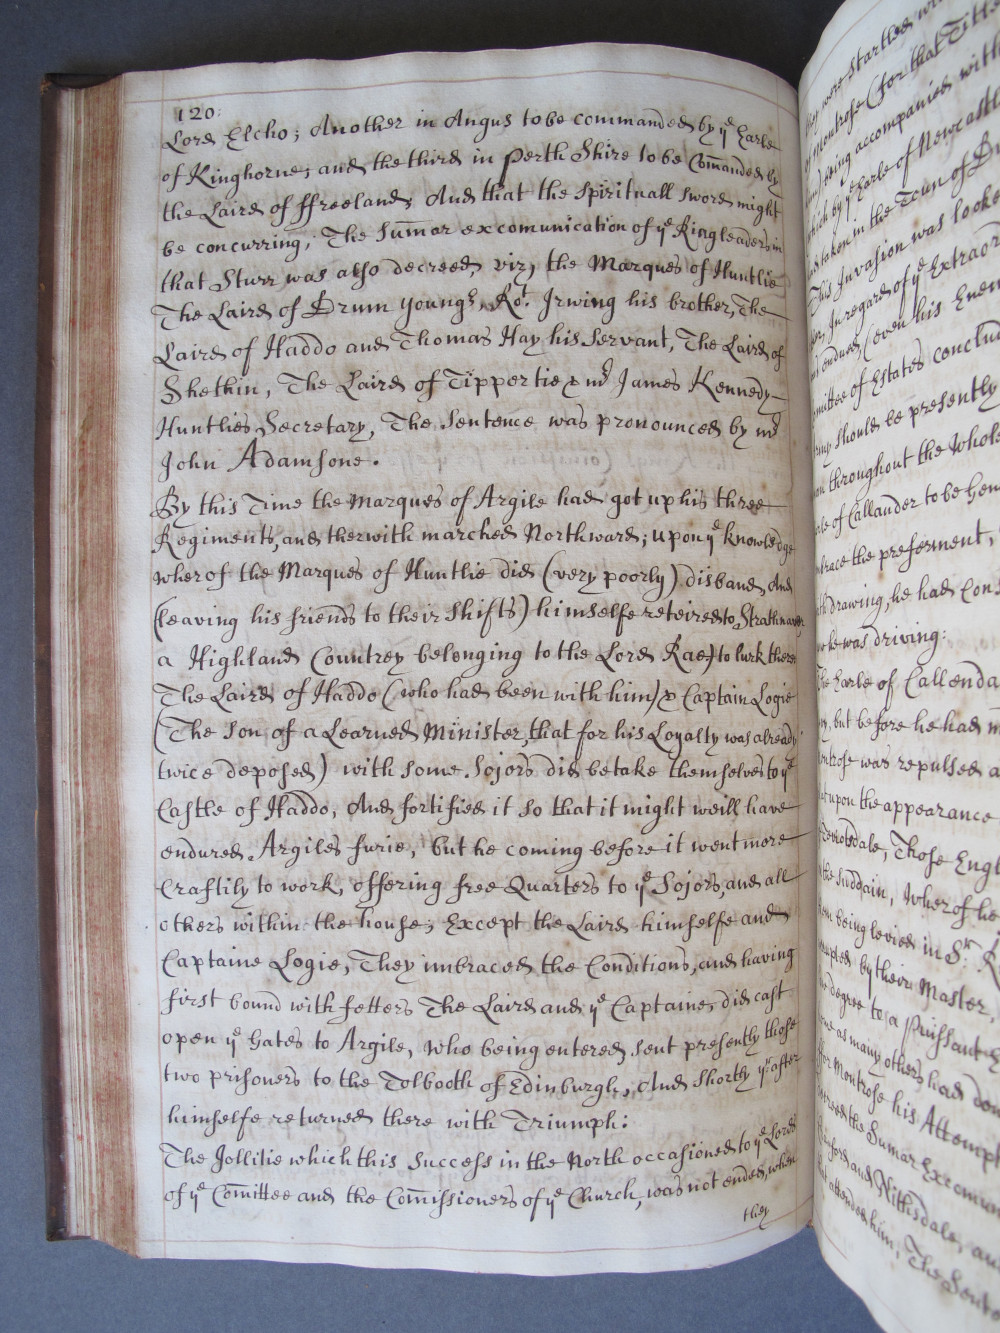 120:
Lord Elcho; Another in Angus to be commanded by yᵉ Earle
of Kinghorne; and the third in Perth Shire to be Com̄anded by
the Laird of ffreeland; And that the spirituall sword might
be concurring, The sum̄ar excomunication of yᵉ Ringleaders in
that Sturr was also decreed, viz, the Marques of Huntlie
The Laird of Drum youngʳ, Roᵗ. Irwing his brother, The
Laird of Haddo and Thomas Hay his servant, The Laird of
Shethin, The Laird of Tippertie & mʳ James Kennedy
Huntlies Secretary, The sentence was pronounced by mʳ
John Adamsone.
By this Time the Marques of Argile had got up his three
Regiments, and therwith marched Northward; upon yᵉ knowledge
wherof the Marques of Huntlie did (very poorly) disband, And
(leaving his friends to their shifts) himselfe reteired to Strathnaver,
a Highland Countrey belonging to the Lord Rae, to lurk there
The Laird of Haddo (who had been with him) & Captain Logie
(The son of a Learned Minister, that for his Loyalty was already
twice deposed) with some sojors did betake themselves to yᵉ
Castle of Haddo, And fortified it so that it might weill have
endured Argiles furie, but he coming before it went more
Craftily to work, offering free Quarters to yᵉ Sojors, and all
others within the house; Except the Laird himselfe and
Captaine Logie, They imbraced the Conditions, and having
first bound with fetters The Laird and yᵉ Captaine, did cast
open yᵉ Gates to Argile, who being entered, sent presently those
two prisoners to the Tolbooth of Edinburgh, And shortly yʳafter
himselfe returned there with Triumph:
The Jollitie which this success in the North occasioned to yᵉ Lords
of yᵉ Com̄ittee and the Com̄issioners of yᵉ Church, was not ended, when
they
they were startled
of Montrose (for that Title
being accompanied with
which by yᵉ Earle of Newcastle
taken in the Town of
This Invasion was looke
In regard of yᵉ Extraor
endured, (even his Enem
mittee of Estates conclud
rmy should be presently
on throughout the whole
le of Callander to be Gen
mbrace the preferment,
drawing, he had Cons
he was driving:
The Earle of Callenda
but before he had
ntrose was repulsed a
upon the appearance
Teviotdale, Those Engl
the suddain, wherof he
being levied in Sʳ.
by their Master,
degree to a puissant
as many others had don
Montrose his Attempt
the Sumar Excomun
and Nithisdale, an
attended him, The Sente